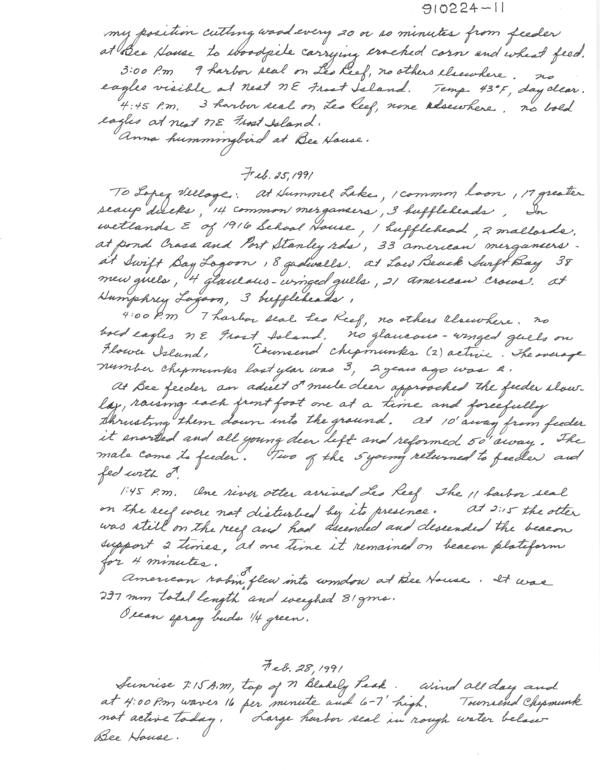 910224-11
my position cutting wood every 20 or so minutes from feeder
at Bee House to woodpile carrying cracked corn and wheat feed.
3:00 P.m. 9 harbor seal on Leo Reef, no others elsewhere. no
eagles visible at nest NE Frost Island. Temp 43°F, day clear.
4:45 P.M. 3 harbor seal on Leo Reef, none elsewhere. no bald
eagles at nest NE Frost Island.
Anna hummingbird at Bee House.
Feb. 25, 1991
To Lopez Village: at Hummel Lake, 1 common loon, 17 greater
scaup ducks, 14 common mergansers, 3 buffleheads, In
wetlands E of 1916 School House, 1 bufflehead, 2 mallards.
at pond Cross and Port Stanley rds, 33 american mergansers.
at Swift Bay Lagoon, 8 gadwalls. at Low Beach Swift Bay 38
mew gulls, 4 glaucous-winged gulls, 21 American Crows. at
Humphrey Lagoon, 3 buffleheads.
4:00 PM 7 harbor seal Leo Reef, no others elsewhere. no
bald eagles NE Frost Island. no glaucous-winged gulls on
Flower Island. Townsend chipmunks (2) active. The average
number chipmunks last year was 3, 2 years ago was 2.
At Bee feeder an adult ♂ mule deer approached the feeder slow-
ly, raising each front foot one at a time and forcefully
thrusting them down into the ground. At 10' away from feeder
it snorted and all young deer left and reformed 50' away. The
male came to feeder. Two of the 5 young returned to feeder and
fed with ♂.
1:45 P.M. One river otter arrived Leo Reef The 11 harbor seal
on the reef were not disturbed by its presence. At 2:15 the otter
was still on the reef and had ascended and descended the beacon
support 2 times, at one time it remained on beacon platiform
for 4 minutes.
American robin ♂ flew into window at Bee House. It was
237 mm total length and weighed 81 gms.
Ocean spray buds 1/4 green.
Feb. 28, 1991
Sunrise 7:15 A.M, top of N Blakely Peak. Wind all day and
at 4:00 PM waves 16 per minute and 6-7' high. Townsend Chipmunk
not active today. Large harbor seal in rough water below
Bee House.